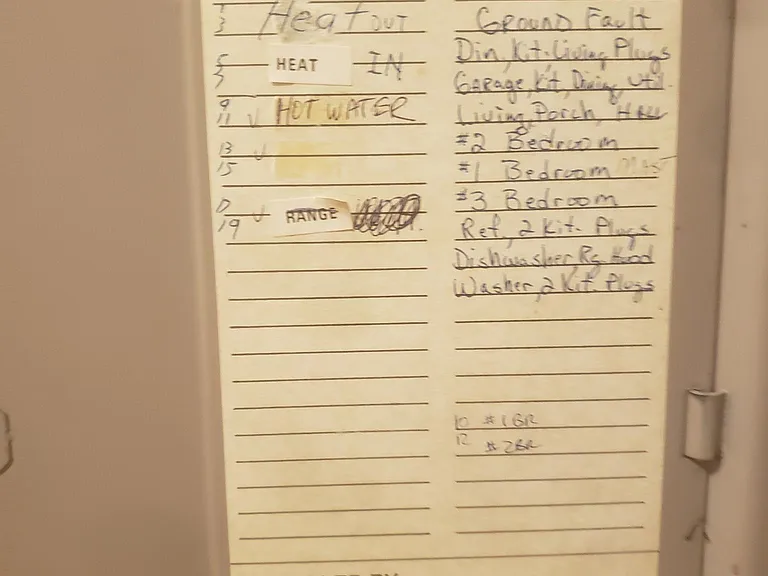 1
3 Heat OUT
5
7 HEAT IN
9
11 HOT WATER
13
15
17
19 RANGE
Ground Fault
Din, Kit. Living Plugs
Garage, Kit, Dining, Util.
Living, Porch, Hall
#2 Bedroom
#1 Bedroom
#3 Bedroom
Ref, 2 Kit. Plugs
Dishwasher, Rg. Hood
Washer, 2 Kit. Plugs
10 #1BR
12 #2BR